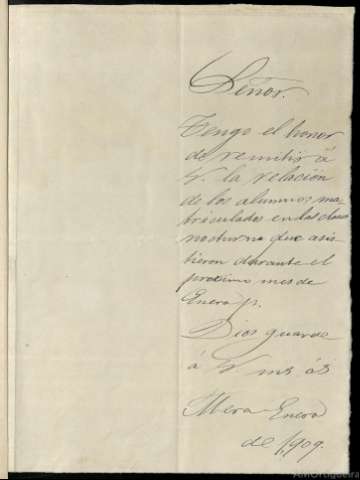 Señor.
Tengo el honor
de remitir á
V. la relación
de los alumnos ma-
triculados en la clase
nocturna que asis-
tieron durante el
proximo mes de
Enero p.
Dios guarde
á V ms as
Mera Enero
de 1,909.
AMOrtigueira